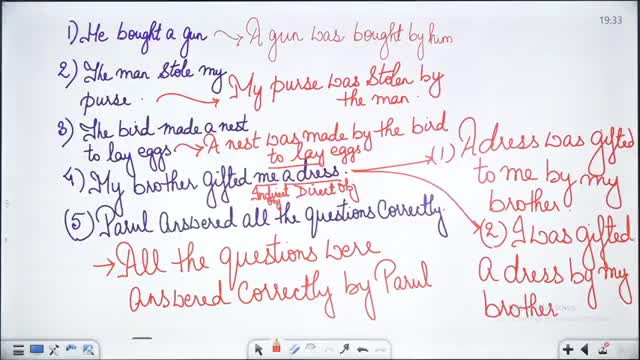 19:33
1) He bought a gun → A gun was bought by him
2) The man stole my
purse. → My purse was stolen by
the man.
3) The bird made a nest
to lay eggs → A nest was made by the bird
to lay eggs
4) My brother gifted me a dress.
Indirect obj Direct obj
(1) A dress was gifted
to me by my
brother.
(2) I was gifted
a dress by my
brother
(5) Parul answered all the questions correctly.
→ All the questions were
answered correctly by Parul